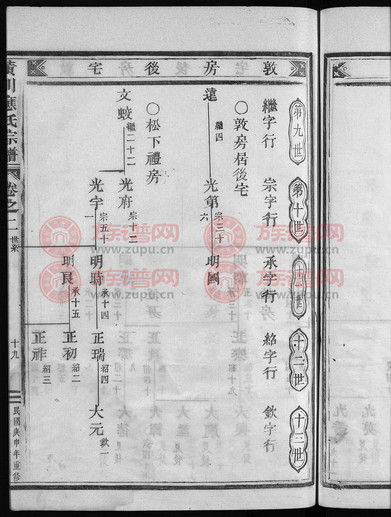 敦房後宅
第九世
第十世
十二世
十三世
繼字行
宗字行
承字行
紹字行
欽字行
〇敦房居後宅
遠 繼四
光第 宗三十六
明國
〇松下禮房
文蛟 繼二十二
光府 宗十二
明時 承十四
正瑞 紹四
大元 欽一
光宇 宗五十一
明良 承十五
正初 紹二
正祚 紹三
應氏宗譜
卷之二
世系
十九
民國庚申年重修
族谱网
www.zupu.cn